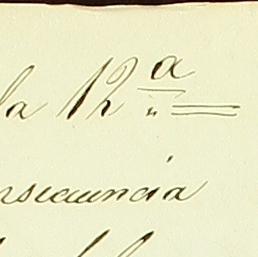 la 12ª =
nsecuencia